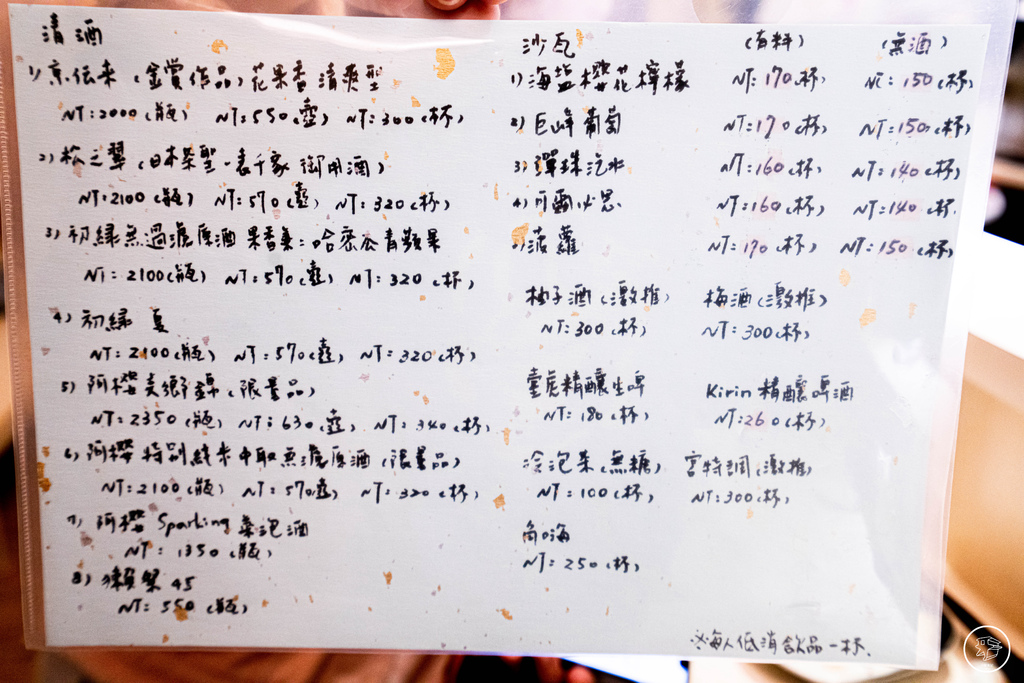 清酒
1) 京伝来 (金賞作品) 花果香 清爽型
NT:2000(瓶) NT:550(壺) NT:300(杯)
2) 松之翠 (日本茶聖-表千家 御用酒)
NT:2100(瓶) NT:570(壺) NT:320(杯)
3) 初緑無過濾原酒 果香集:哈密瓜 青蘋果
NT:2100(瓶) NT:570(壺) NT:320(杯)
4) 初緑 夏
NT:2100(瓶) NT:570(壺) NT:320(杯)
5) 阿櫻美郷錦 (限量品)
NT:2350(瓶) NT:630(壺) NT:340(杯)
6) 阿櫻 特別純米中取無濾原酒 (限量品)
NT:2100(瓶) NT:570(壺) NT:320(杯)
7) 阿櫻 Sparkling 氣泡酒
NT:1350(瓶)
8) 獺祭 45
NT:550(瓶)
沙瓦 (有料) (無酒)
1) 海盐櫻花檸檬 NT:170(杯) NT:150(杯)
2) 巨峰葡萄 NT:170(杯) NT:150(杯)
3) 彈珠汽水 NT:160(杯) NT:140(杯)
4) 可爾必思 NT:160(杯) NT:140(杯)
5) 菠蘿 NT:170(杯) NT:150(杯)
柚子酒(激推) 梅酒(激推)
NT:300(杯) NT:300(杯)
臺虎精釀生啤 Kirin 精釀啤酒
NT:180(杯) NT:260(杯)
冷泡茶(無糖) 宮特調(激推)
NT:100(杯) NT:300(杯)
角嗨
NT:250(杯)
※每人低消飲品一杯.